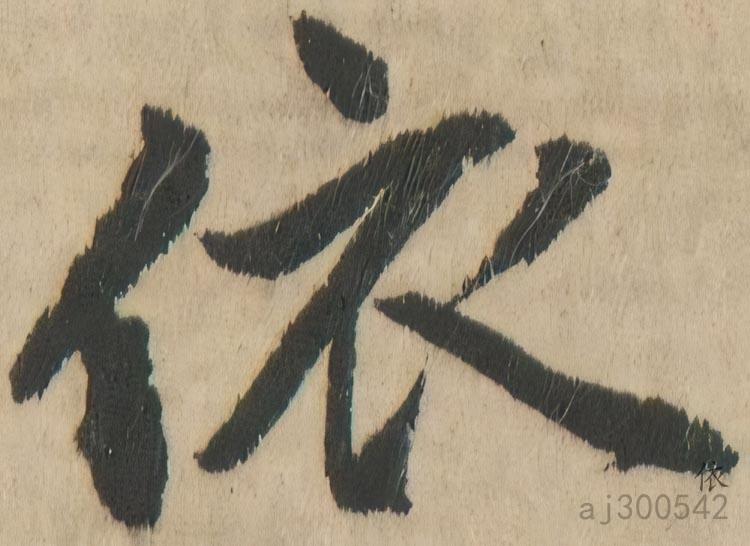 依
依
aj300542